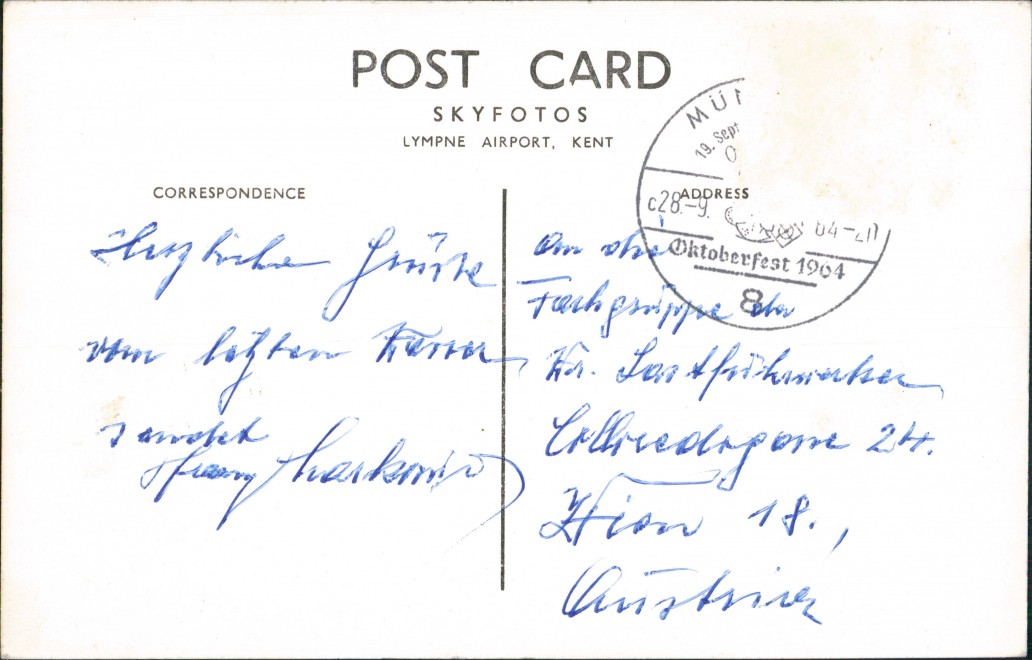 POST CARD
SKYFOTOS
LYMPNE AIRPORT, KENT
CORRESPONDENCE
ADDRESS
MÜN
19. Sept
c28.-9. 64-20
Oktoberfest 1964
8
Herzliche Grüße
vom letzten
sendet
Franz Markowitz
An die
Fachgruppe der
Kr. Lastfuhrwerker
24.
Wien 18.,
Austria